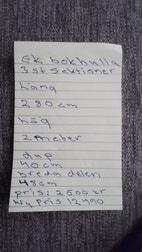 Ek bokhulla
3 st sektioner
hang
280 cm
hög
2 meber
dup
40 cm
breda delen
48 cm
pris: 2500 kr
Ny pris 12400